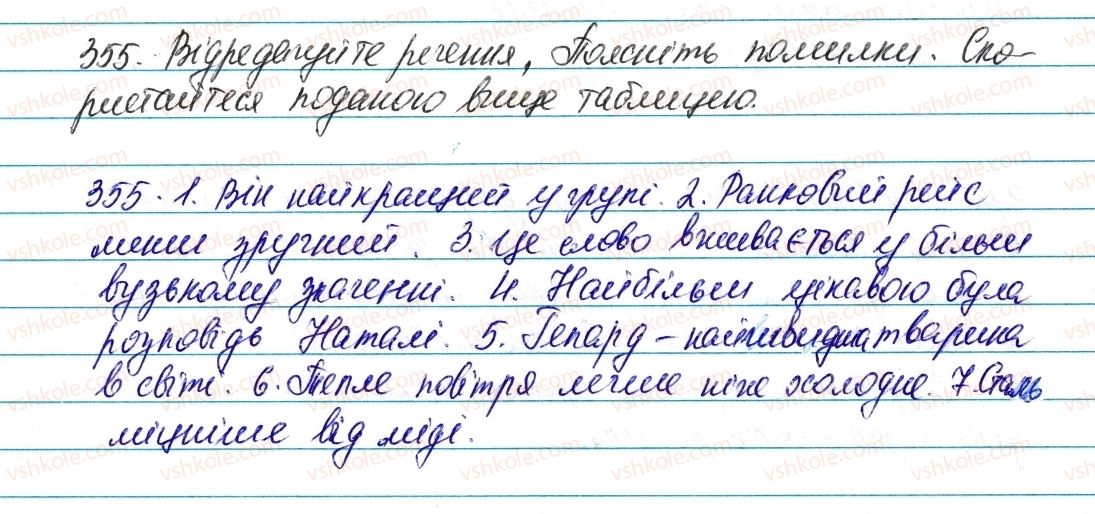 355. Відредагуйте речення, Поясніть помилки. Ско-
ристайтеся поданою вище таблицею.
355. 1. Він найкращий у групі. 2. Ранковий рейс
менш зручний. 3. Це слово вживається у більш
вузькому значенні. 4. Найбільш цікавою була
розповідь Наталі. 5. Гепард – найшвидша тварина
в світі. 6. Тепле повітря легше ніж холодне. 7. Сталь
міцніше від міді.